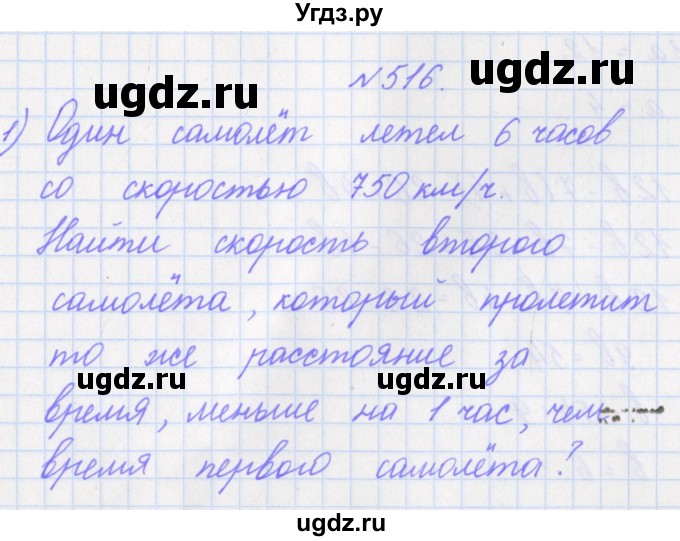 Угдз.ру
ugdz.ru
№516.
ugdz.ru
1) Один самолёт летел 6 часов
со скоростью 750 км/ч.
Найти скорость второго
самолёта, который пролетит
то же расстояние за
ugdz.ru
ugdz.ru
время, меньше на 1 час, чем
время первого самолёта?
ugdz.ru